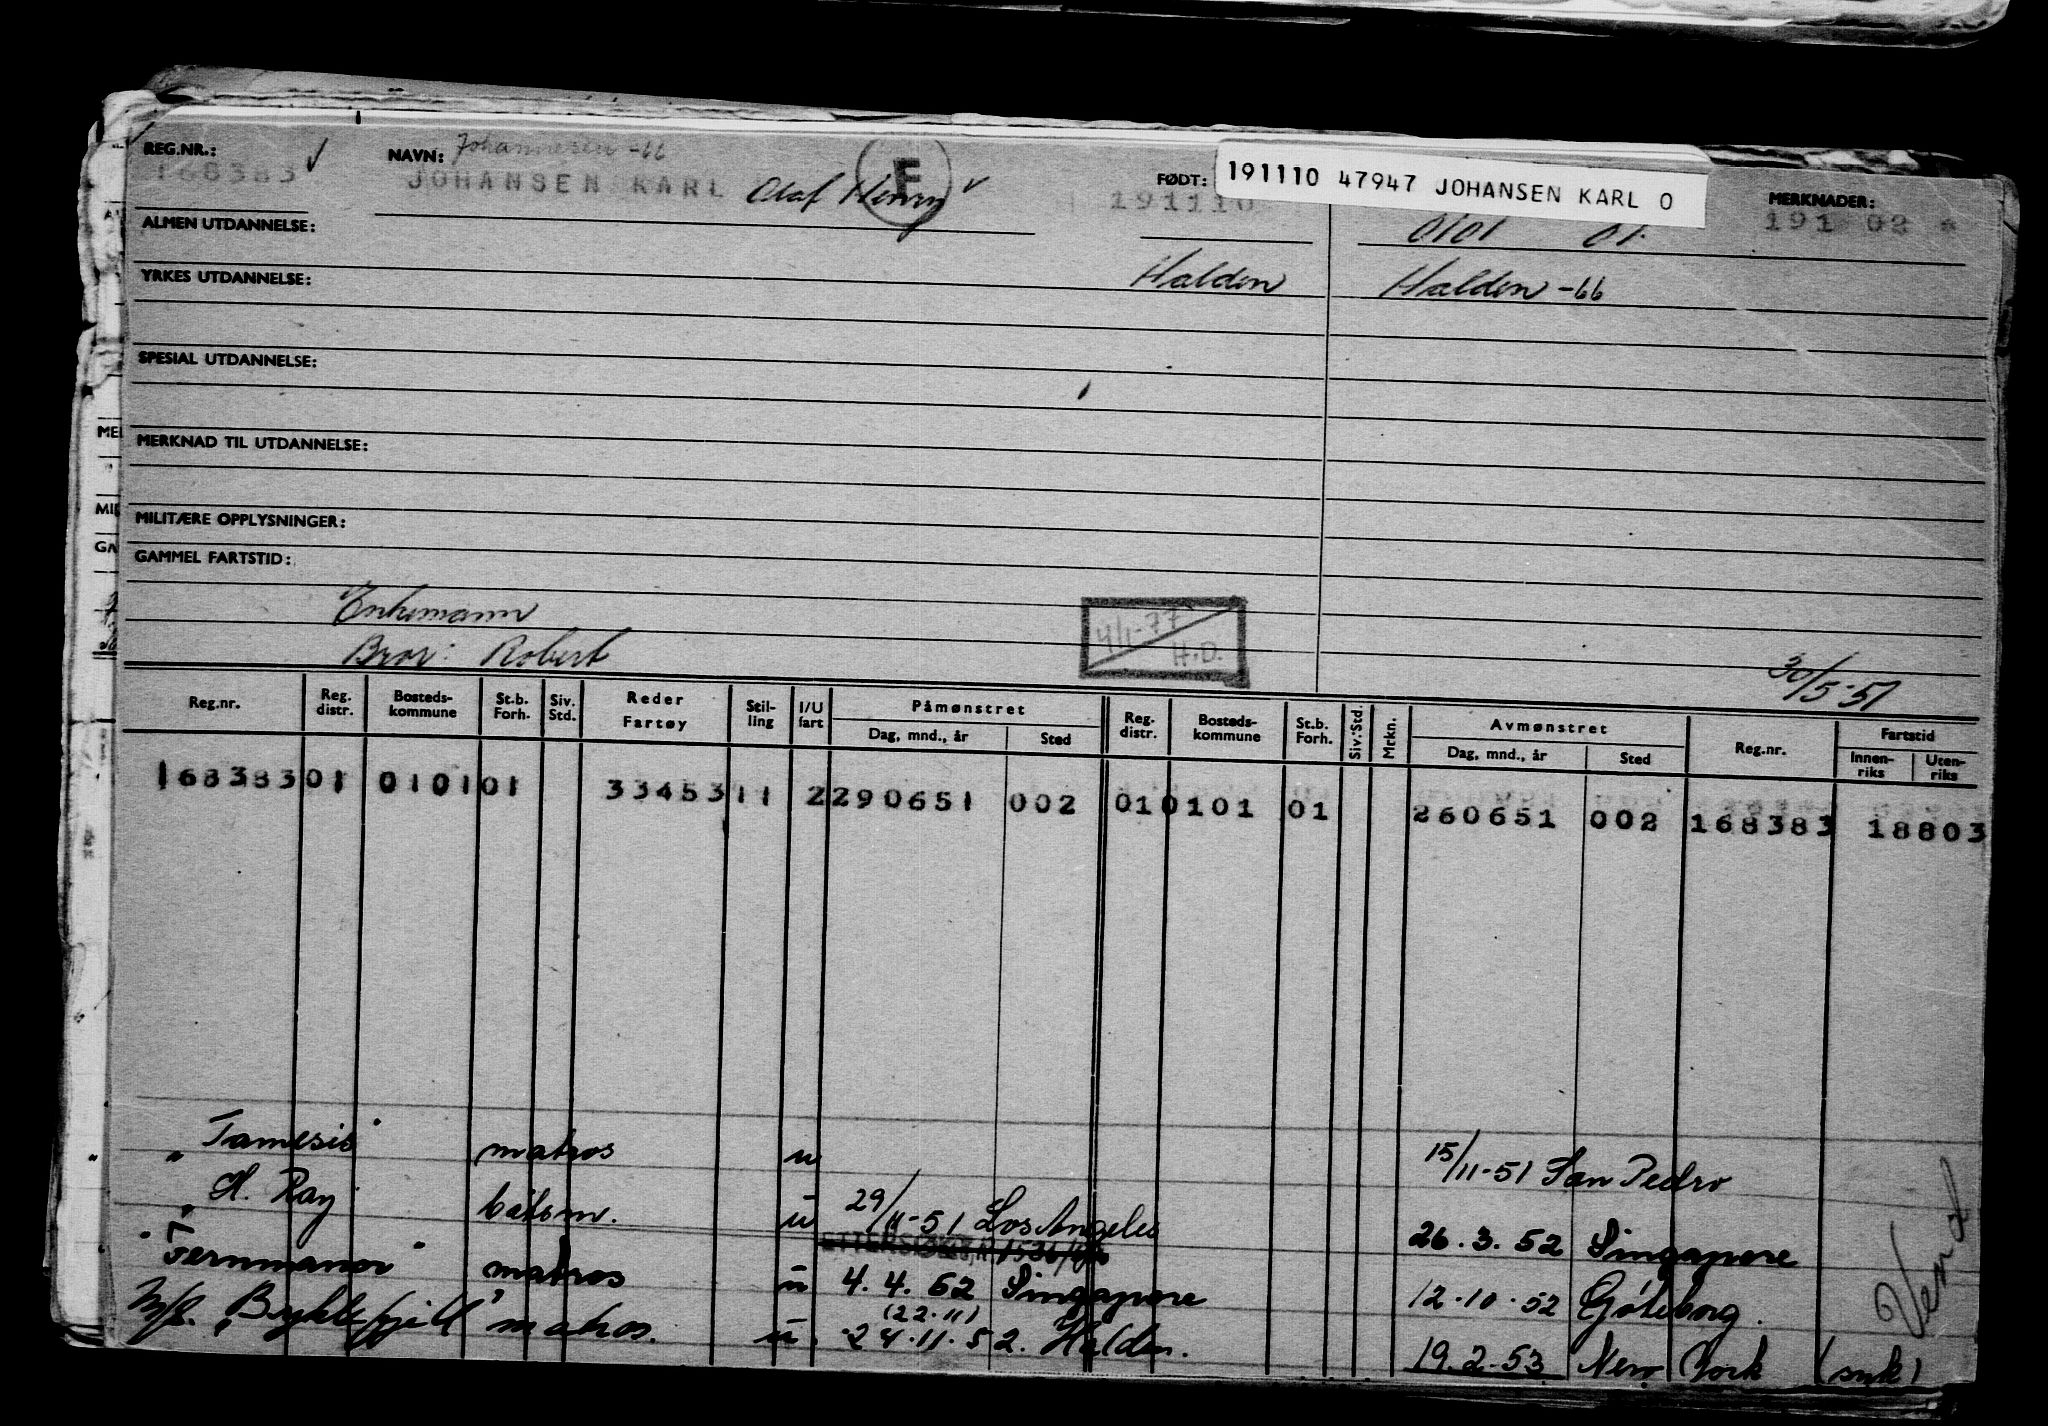 REG.NR.: 168383
NAVN: Johannesen -66
JOHANSEN KARL Olaf Henry
F
FØDT: 191110
191110 47947 JOHANSEN KARL O
MERKNADER:
191 02 *
0101 01
ALMEN UTDANNELSE:
Halden Halden -66
YRKES UTDANNELSE:
SPESIAL UTDANNELSE:
MERKNAD TIL UTDANNELSE:
MILITÆRE OPPLYSNINGER:
GAMMEL FARTSTID:
Enkemann
Bror: Robert
4/1-77
H.D.
30/5-51
Reg.nr. Reg. distr. Bosteds-kommune St.b. Forh. Siv. Std. Reder Fartøy Stil-ling I/U fart Påmønstret Dag, mnd., år Sted Reg. distr. Bosteds-kommune St.b. Forh. Siv. Std. Mrkn. Avmønstret Dag, mnd., år Sted Reg.nr. Fartstid Innen-riks Uten-riks
168383 01 0101 01 33453 11 2 290651 002 01 0101 01 260651 002 168383 18803
" Tamesis" matros u 15/11-51 San Pedro
" H. Ray båtsm. u 29/11-51 Los Angeles 26.3.52 Singapore
"Fernmanor" matros u 4.4.52 Singapore 12.10.52 Göteborg.
(22.11)
M/s. "Byklefjell" matros. u. 24.11.52. Halden. 19.2.53 New York (syk)
Vend